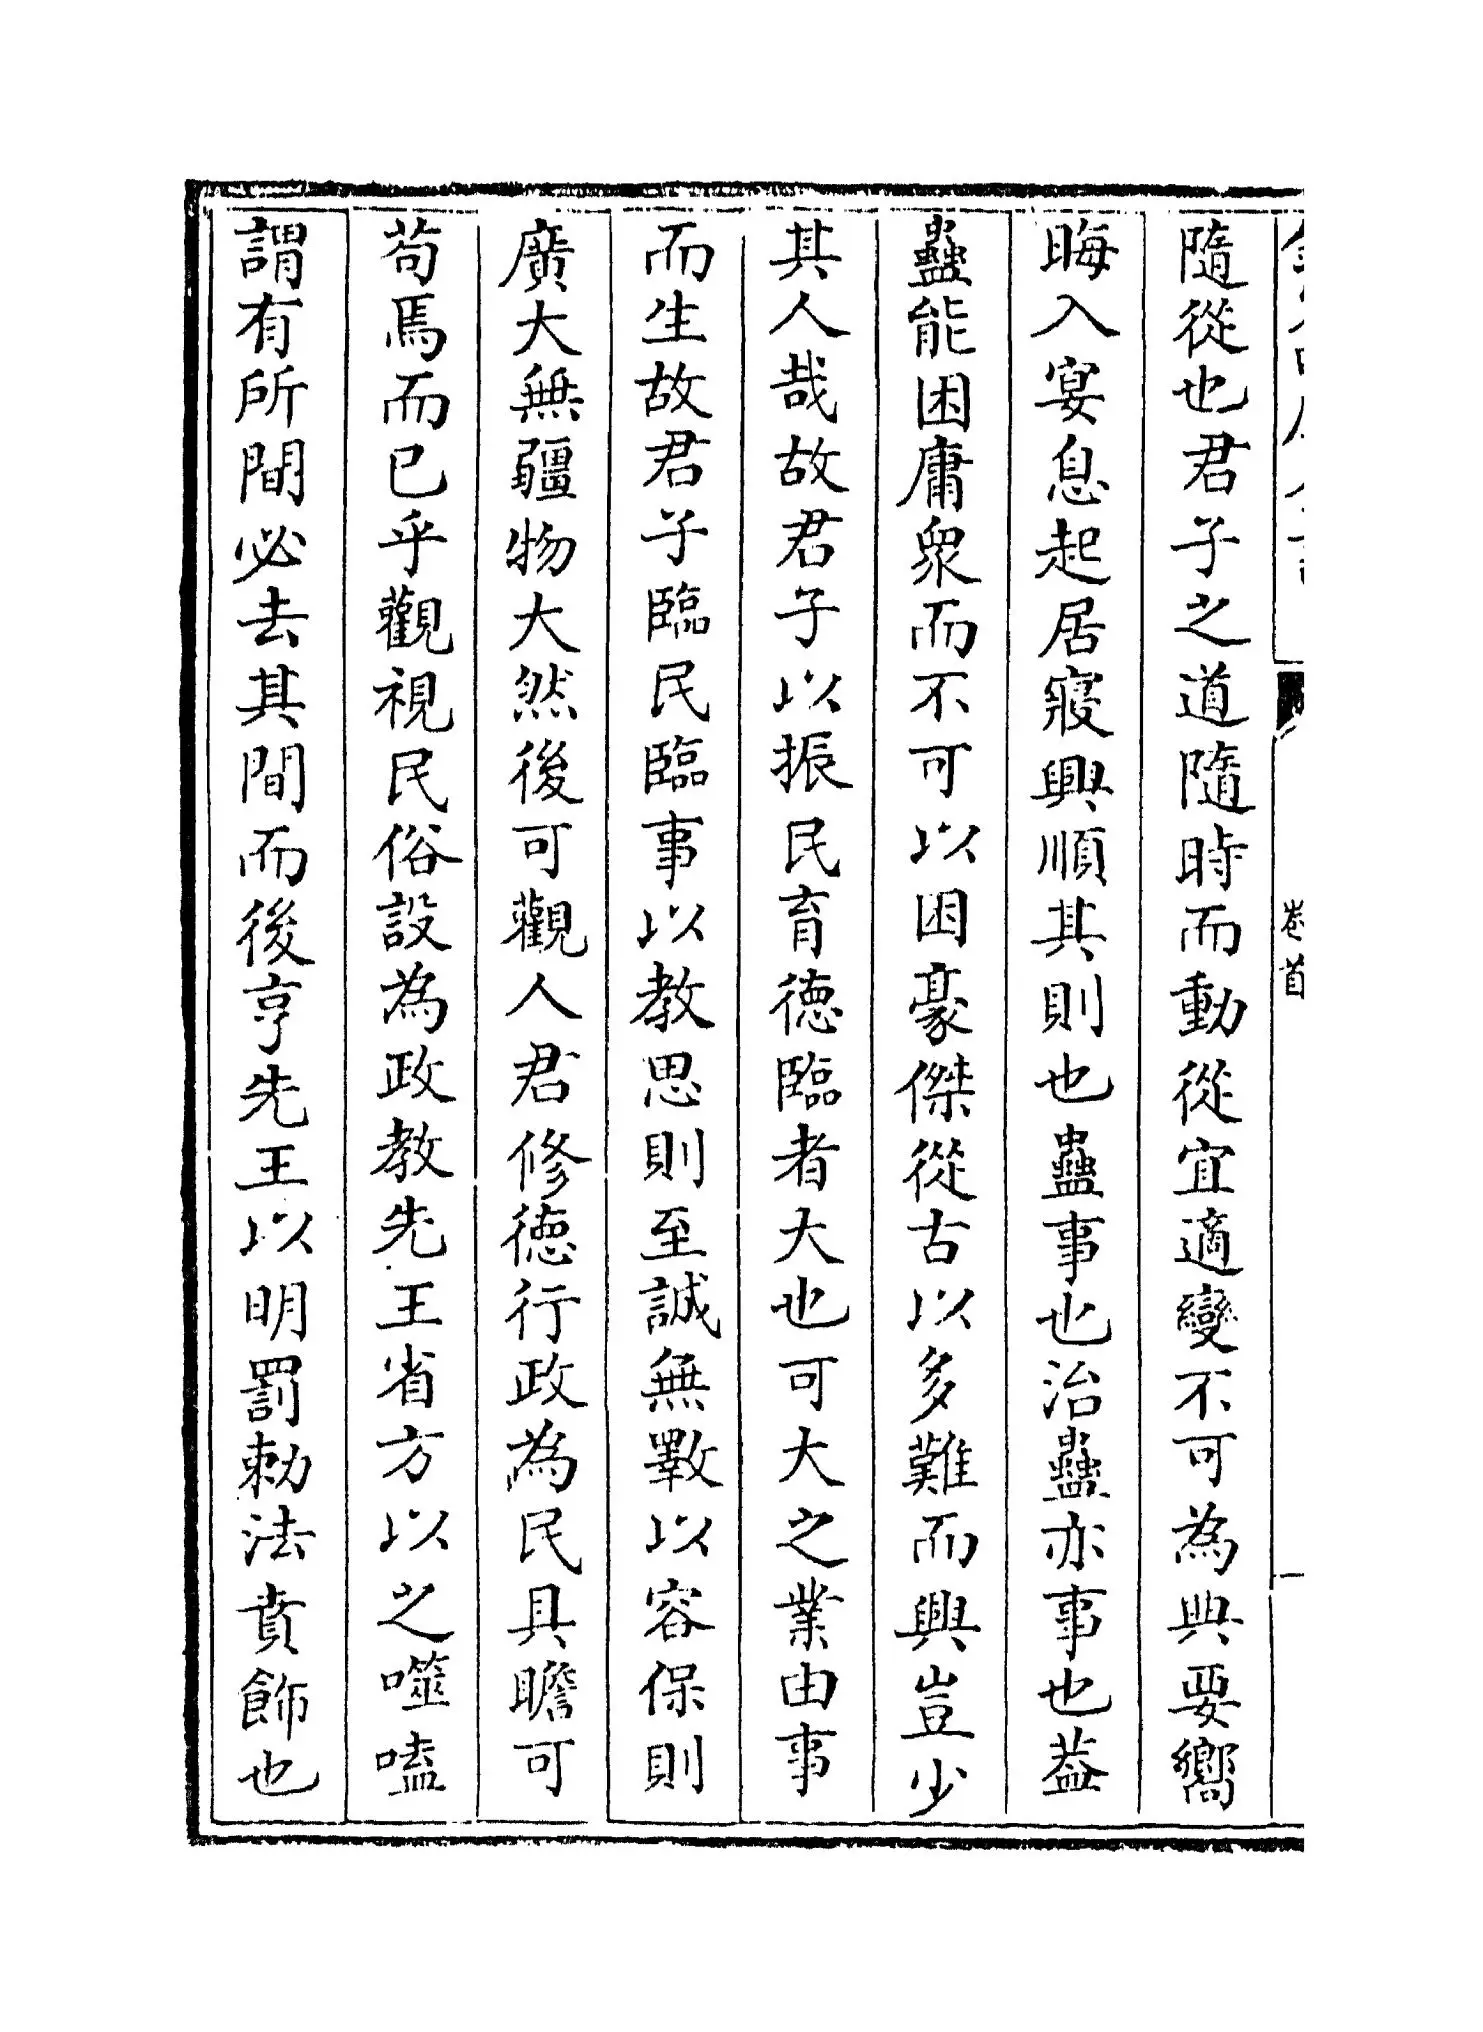 卷首
隨從也君子之道隨時而動從宜適變不可為典要嚮
晦入宴息起居寢興順其則也蠱事也治蠱亦事也葢
蠱能困庸衆而不可以困豪傑從古以多難而興豈少
其人哉故君子以振民育德臨者大也可大之業由事
而生故君子臨民臨事以教思則至誠無斁以容保則
廣大無疆物大然後可觀人君修德行政為民具瞻可
苟焉而已乎觀視民俗設為政教先王省方以之噬嗑
謂有所間必去其間而後亨先王以明罰勅法賁飾也